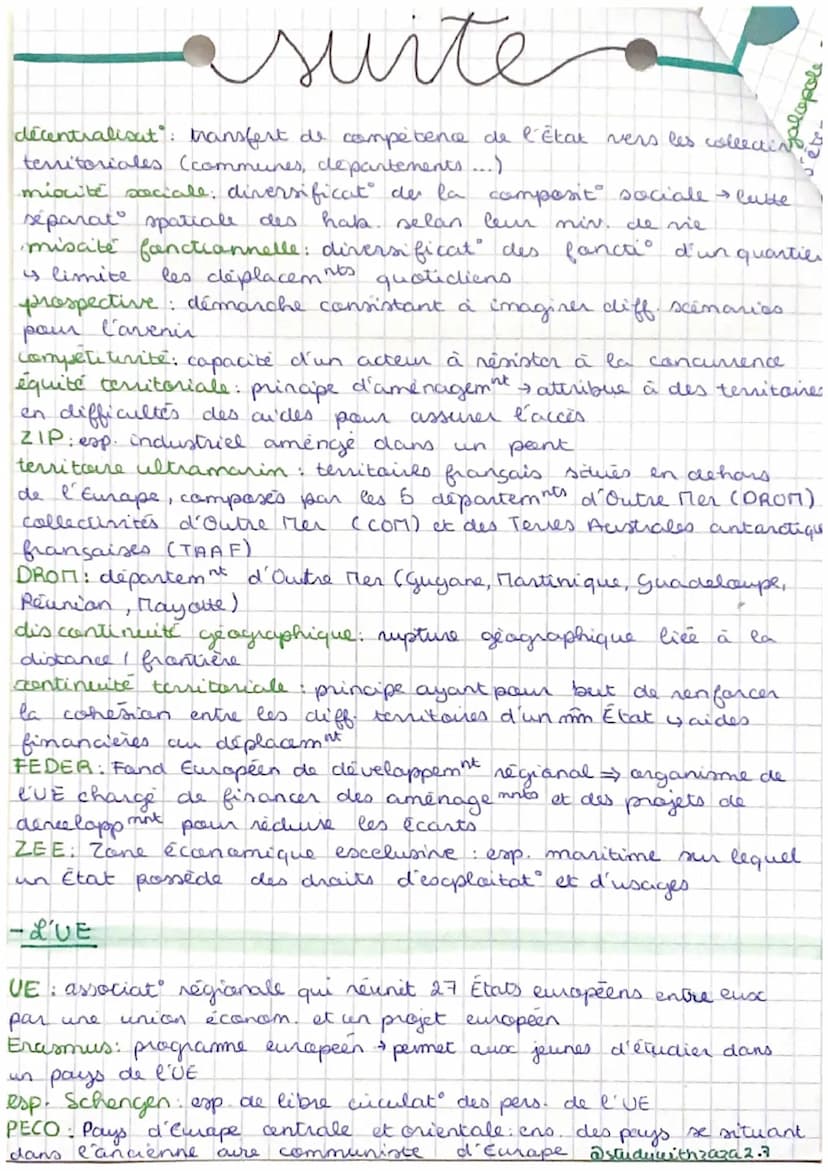 suite
décentralisat°: transfert de compétence de l'État vers les collectiv
territoriales (communes, departements ...)
mixité sociale: diversificat° de la composit° sociale → lutte
séparat° spatiale des hab. selon leur niv. de vie
mixité fonctionnelle: diversificat° des foncti° d'un quartier
↳ limite les déplacemnts quotidiens
prospective : démarche consistant à imaginer diff. scénarios
pour l'avenir
compétitivité: capacité d'un acteur à résister à la concurrence
équité territoriale: principe d'aménagemnt → attribue à des territoires
en difficultés des aides pour assurer l'accès
ZIP: esp. industriel améngé dans un port
territoire ultramarin : territoires français situés en dehors
de l'Europe, composés par les 5 départemnts d'Outre Mer (DROM)
collectivités d'Outre Mer (COM) et des Terres Australes antarctiqu
françaises (TAAF)
DROM: départemnt d'Outre Mer (Guyane, Martinique, Guadeloupe,
Réunion, Mayotte)
discontinuité géographique: rupture géographique liée à la
distance / frontière
continuité territoriale : principe ayant pour but de renforcer
la cohésion entre les diff. territoires d'un mm État ↳ aides
financières au déplacemnt
FEDER: Fond Européen de développemnt régional ⇒ organisme de
l'UE chargé de financer des aménagemnts et des projets de
developpmnt pour réduire les écarts
ZEE: Zone économique exclusive : esp. maritime sur lequel
un État possède des droits d'exploitat° et d'usages
- L'UE
UE : associat° régionale qui réunit 27 États européens entre eux
par une union économ. et un projet européen
Erasmus: programme européen → permet aux jeunes d'étudier dans
un pays de l'UE
esp. Schengen: esp. de libre circulat° des pers. de l'UE
PECO : Pays d'Europe centrale et orientale: ens. des pays se situant
dans l'ancienne aire communiste d'Europe @studywithzaza2.7